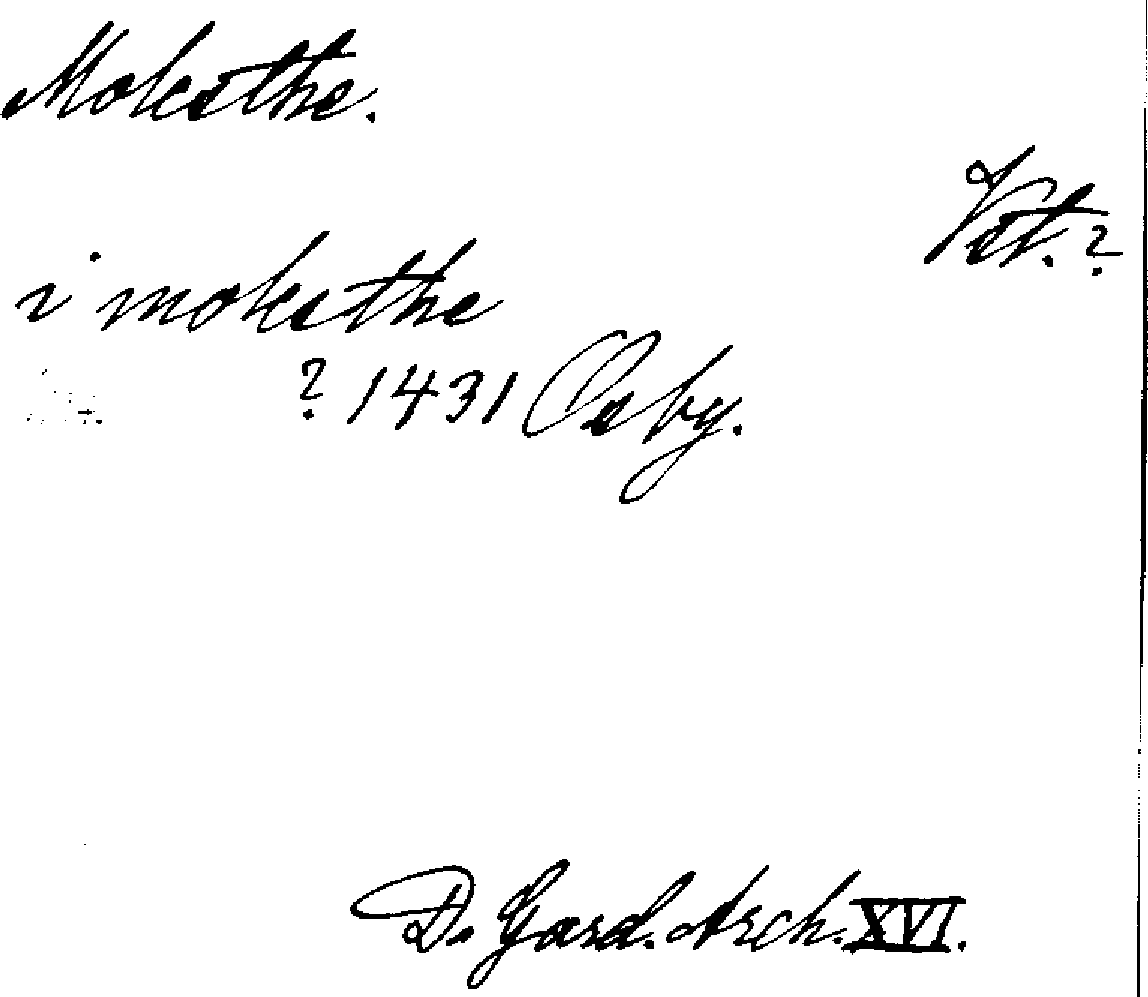 Moksthe.
Vst.?
i moksthe
? 1431 Osby.
D. Gard. Arch. XVI.